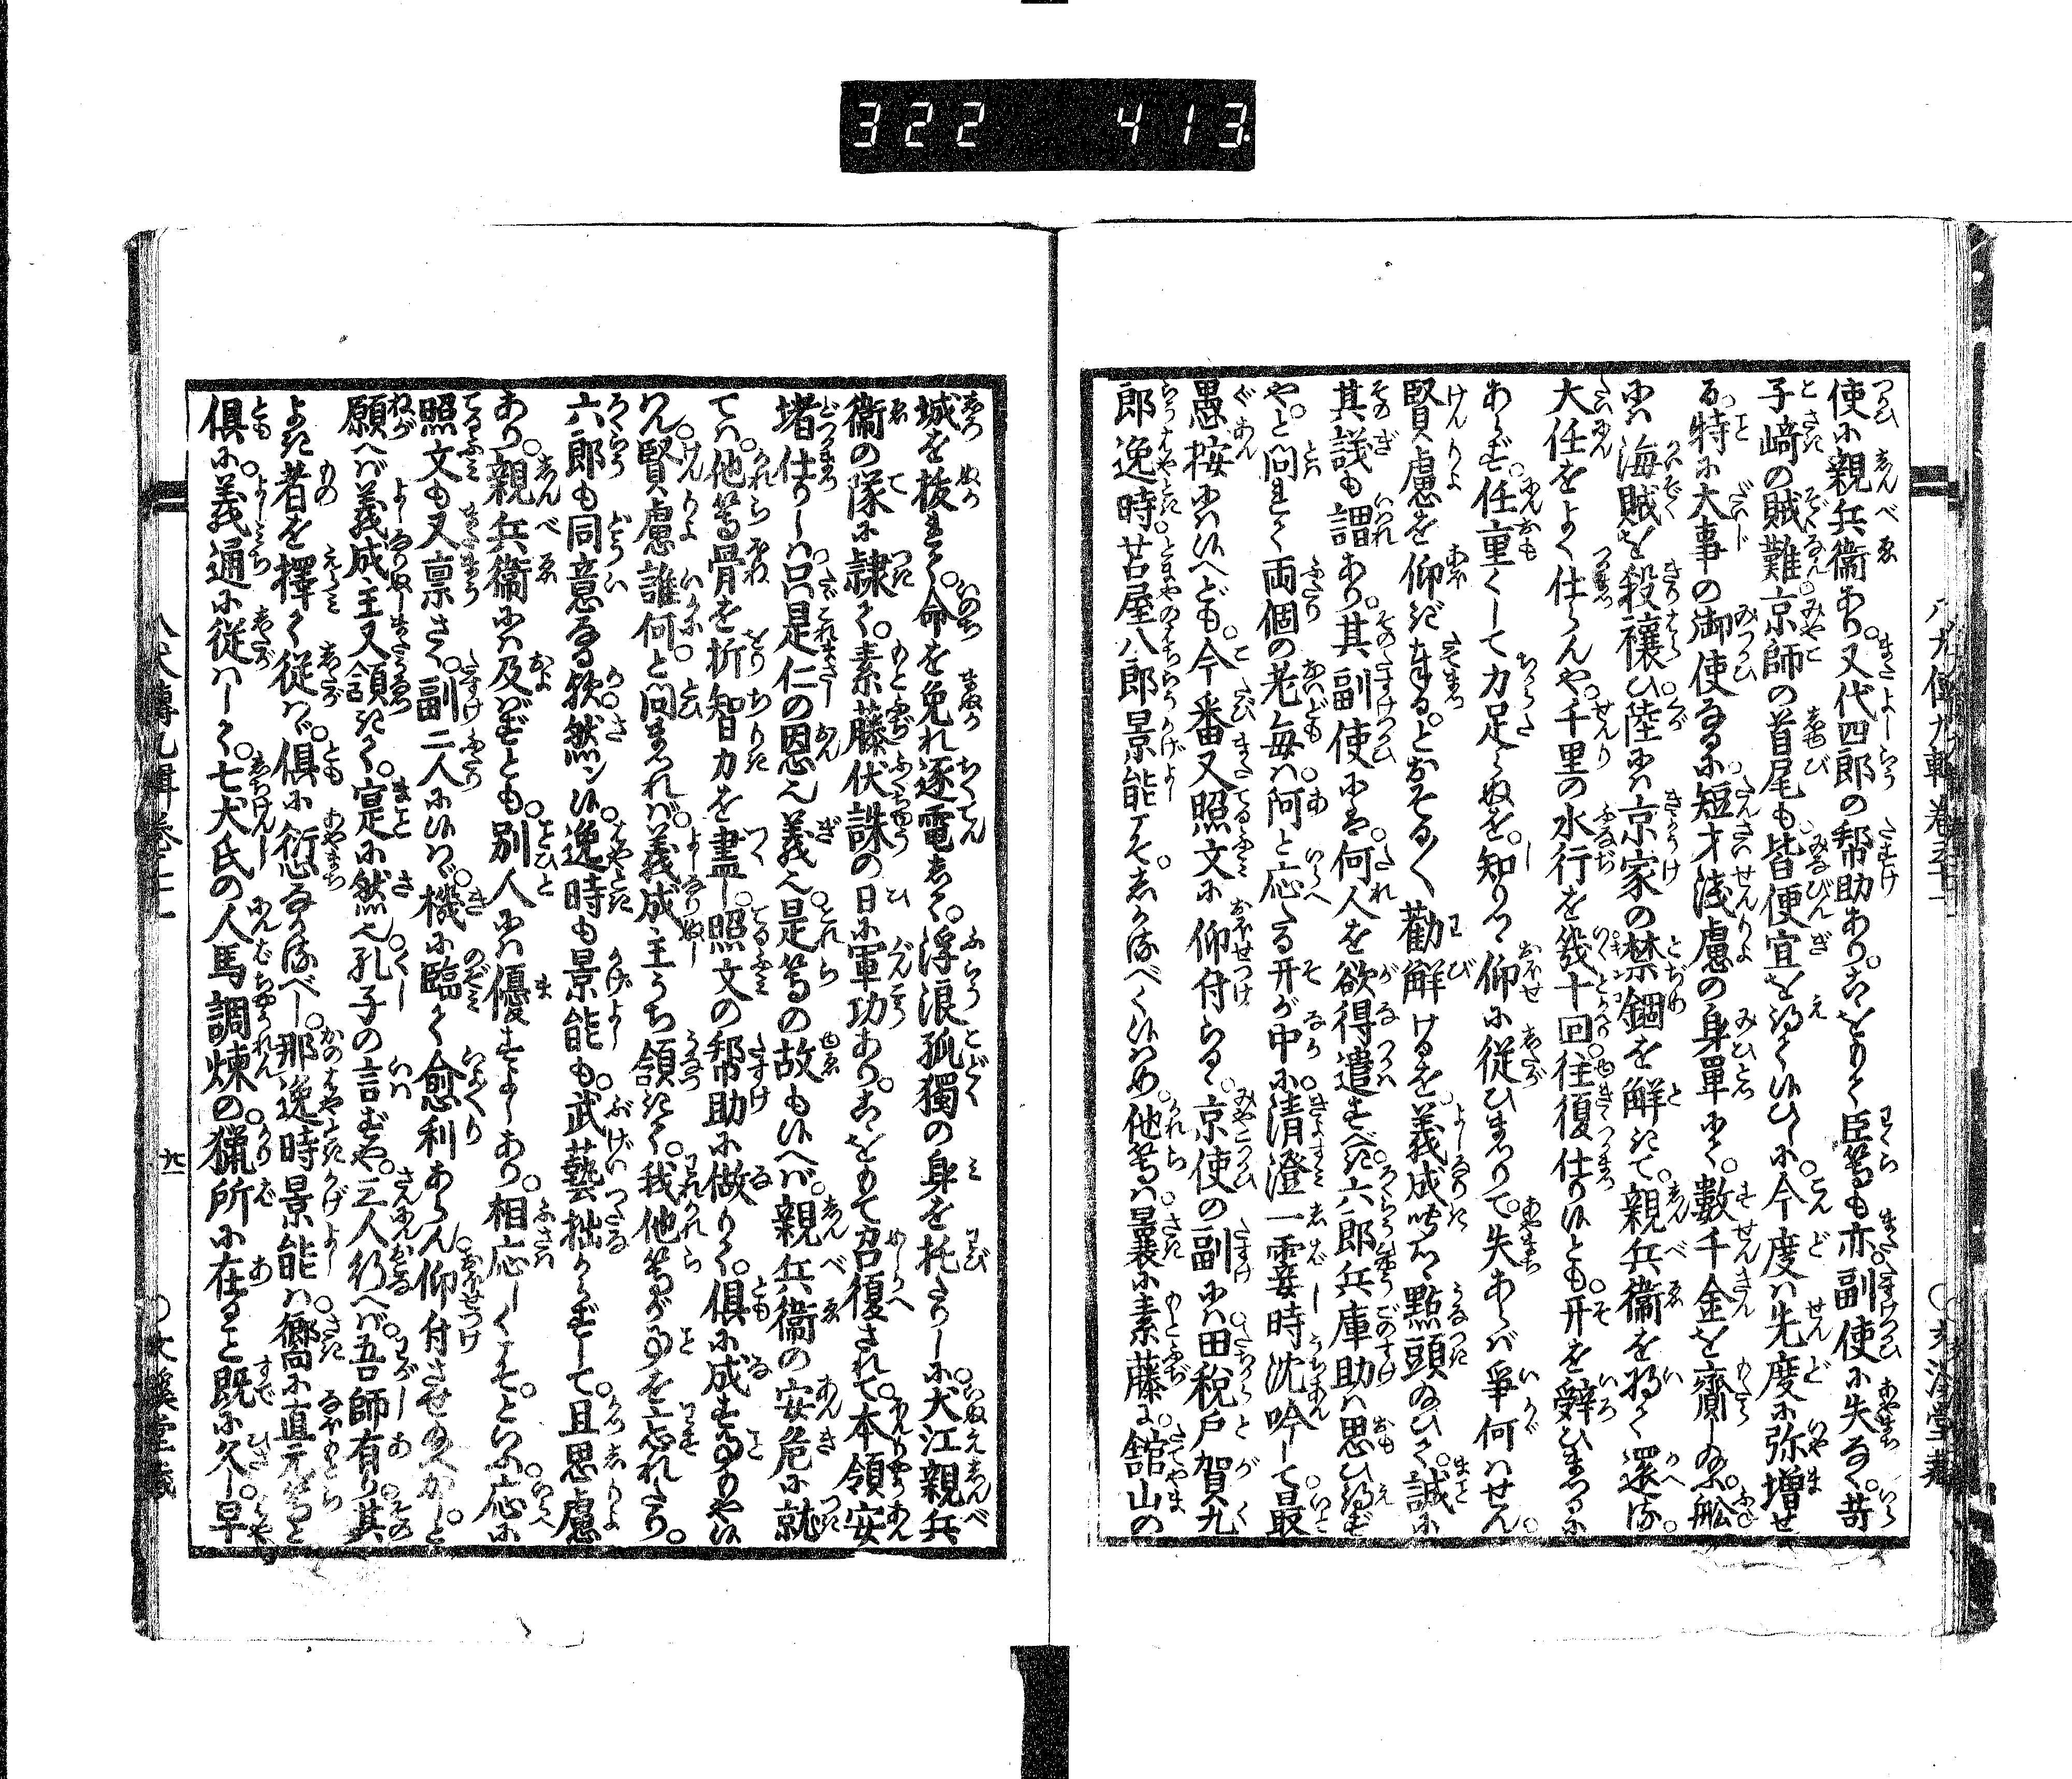 322 413
使に親兵衛あり。又代四郎の幇助あり。こをもて臣等も亦副使に失なく。苛
子﨑の賊難京師の首尾も皆便宜を得て候ひしに。今度は先度に弥増せ
る。特に大事の御使なるに短才淺慮の身單にて。數千金を齎しぬる。舩
には海賊を殺禳ひ。陸には京家の禁錮を觧して。親兵衛を將て還る。
大任をよく仕らんや。千里の水行を幾十回往復仕り候とも。开を辭ひまつるに
あらず。任重くして力足らぬを。知りつゝ仰に従ひまつりて。失あらば爭何はせん。
賢慮を仰ぎ奉る。とおそる〳〵勸觧けるを。義成听つゝ點頭給ひて。誠に
其議も謂あり。其副使には。何人を欲得遣すべき。六郎兵庫助は思ひ得ず
や。と問れて両個の老毎は。阿と応る开が中に。清澄一霎時沈吟して。最
愚按には候へども。今番又照文に仰付らるゝ。京使の副には田税戸賀九
郎逸時。苫屋八郎景能こそ。しかるべく候はめ。他等は曩に素藤に。舘山の
城を抜れて。命を免れ逐電して。浮浪孤獨の身を托たりしに。犬江親兵
衛の隊に隷て。素藤伏誅の日に軍功あり。こをもて召復されて。本領安
堵仕りしは。只是仁の恩也義也。是等の故も候へば。親兵衛の安危に就
ては。他等骨を折智力を盡し。照文の幇助に做りて。倶に成すよしもや候
はん。賢慮誰何。と問まつれば。義成主うち領きて。我他等が事を忘れたり。
六郎も同意なる歟。然ン候。逸時も景能も。武藝拙からずして。且思慮
あり。親兵衛には及ばずとも。別人には優すよしあり。相応しくこそ。といふ応に
照文も又稟さく。副二人に候はゞ。機に臨て愈利あらん。仰付させ給へかし。と
願へば義成主又領きて。寔に然也。孔子の言ずや。三人行へば吾師有り。其
よき者を擇て従はゞ。倶に愆なかるべし。那逸時景能は。嚮に直元等と
倶に。義通に従はして。七犬氏の人馬調煉の。獵所に在ること既に久し。早
八犬傳九輯巻三十一
九
○文溪堂藏